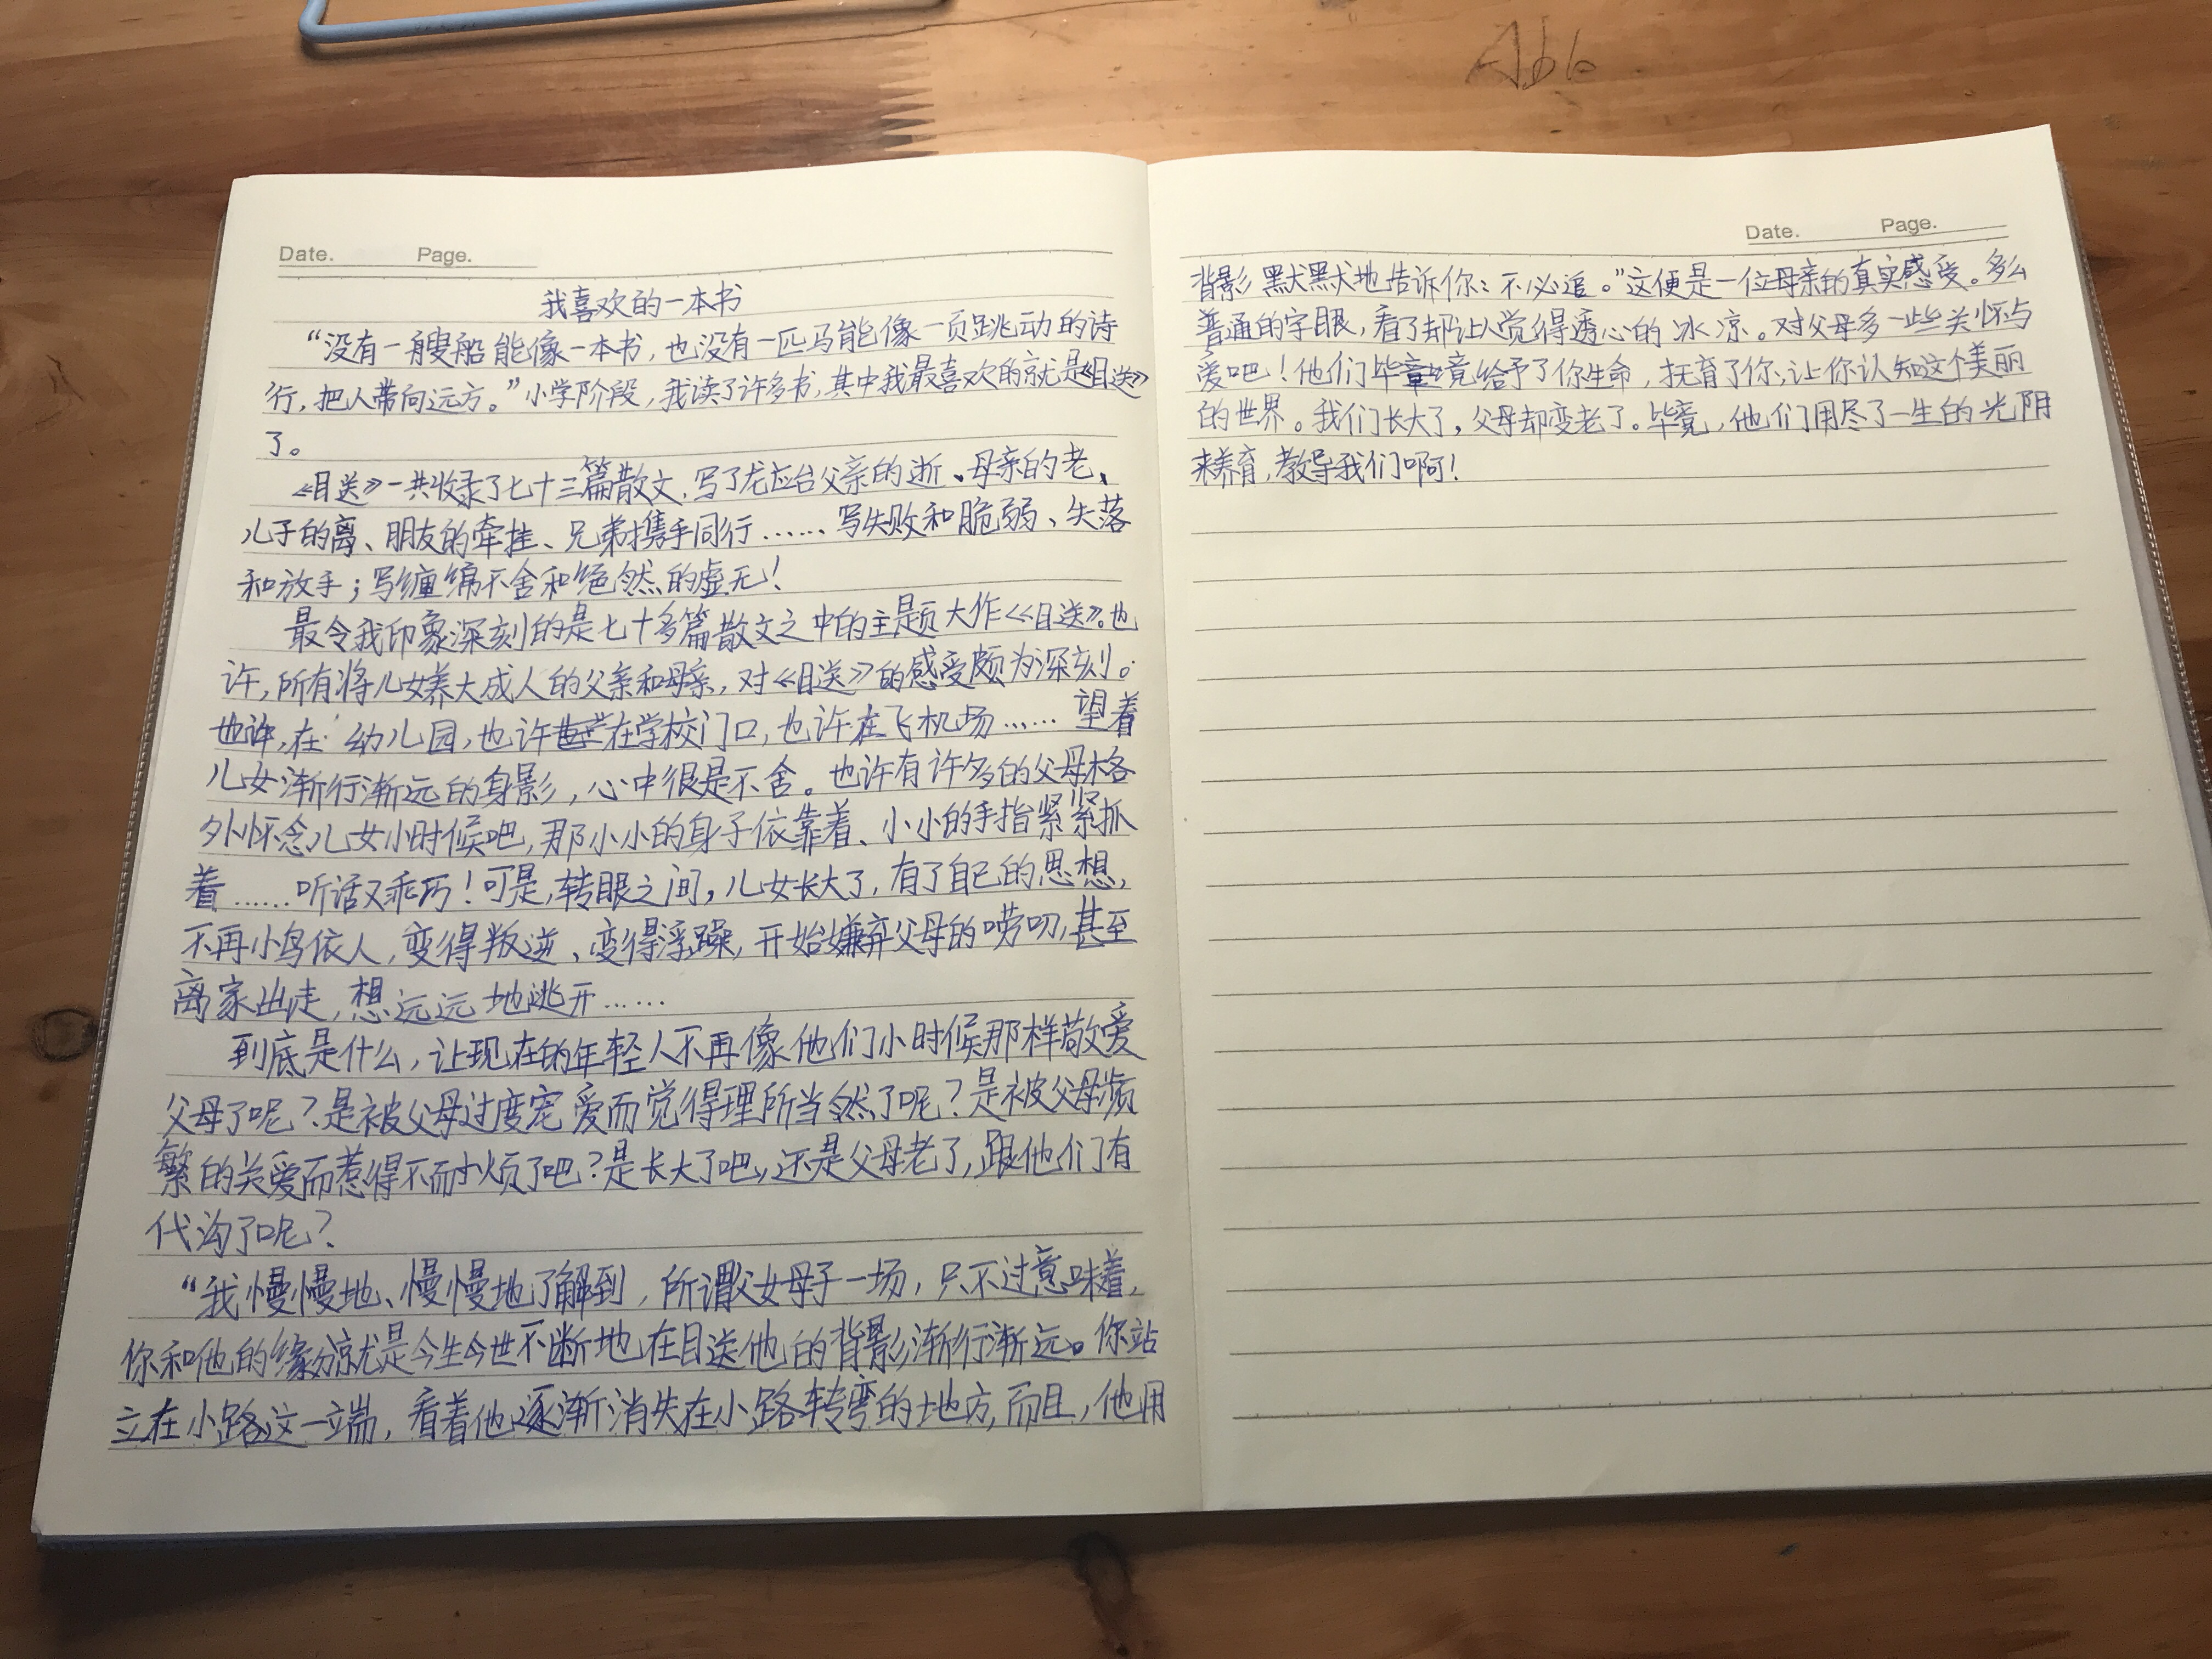 Abb
Date. Page.
我喜欢的一本书
“没有一艘船能像一本书，也没有一匹马能像一页跳动的诗
行，把人带向远方。”小学阶段，我读了许多书，其中我最喜欢的就是《目送》
了。
《目送》一共收录了七十三篇散文，写了龙应台父亲的逝、母亲的老、
儿子的离、朋友的牵挂、兄弟携手同行……写失败和脆弱、失落
和放手；写缠绵不舍和绝然的虚无！
最令我印象深刻的是七十多篇散文之中的主题大作《目送》。也
许，所有将儿女养大成人的父亲和母亲，对《目送》的感受颇为深刻。
也许，在幼儿园，也许在学校门口，也许在飞机场……望着
儿女渐行渐远的身影，心中很是不舍。也许有许多的父母格
外怀念儿女小时候吧，那小小的身子依靠着、小小的手指紧紧抓
着……听话又乖巧！可是，转眼之间，儿女长大了，有了自己的思想，
不再小鸟依人，变得叛逆、变得浮躁，开始嫌弃父母的唠叨，甚至
离家出走，想远远地逃开……
到底是什么，让现在的年轻人不再像他们小时候那样敬爱
父母了呢？是被父母过度宠爱而觉得理所当然了呢？是被父母频
繁的关爱而惹得不耐烦了吧？是长大了吧，还是父母老了，跟他们有
代沟了呢？
“我慢慢地、慢慢地了解到，所谓父女母子一场，只不过意味着，
你和他的缘分就是今生今世不断地在目送他的背影渐行渐远。你站
立在小路这一端，看着他逐渐消失在小路转弯的地方，而且，他用
Date. Page.
背影默默地告诉你：不必追。”这便是一位母亲的真实感受。多么
普通的字眼，看了却让人觉得透心的冰凉。对父母多一些关怀与
爱吧！他们毕竟给予了你生命，抚育了你，让你认知这个美丽
的世界。我们长大了，父母却变老了。毕竟，他们用尽了一生的光阴
来养育，教导我们啊！